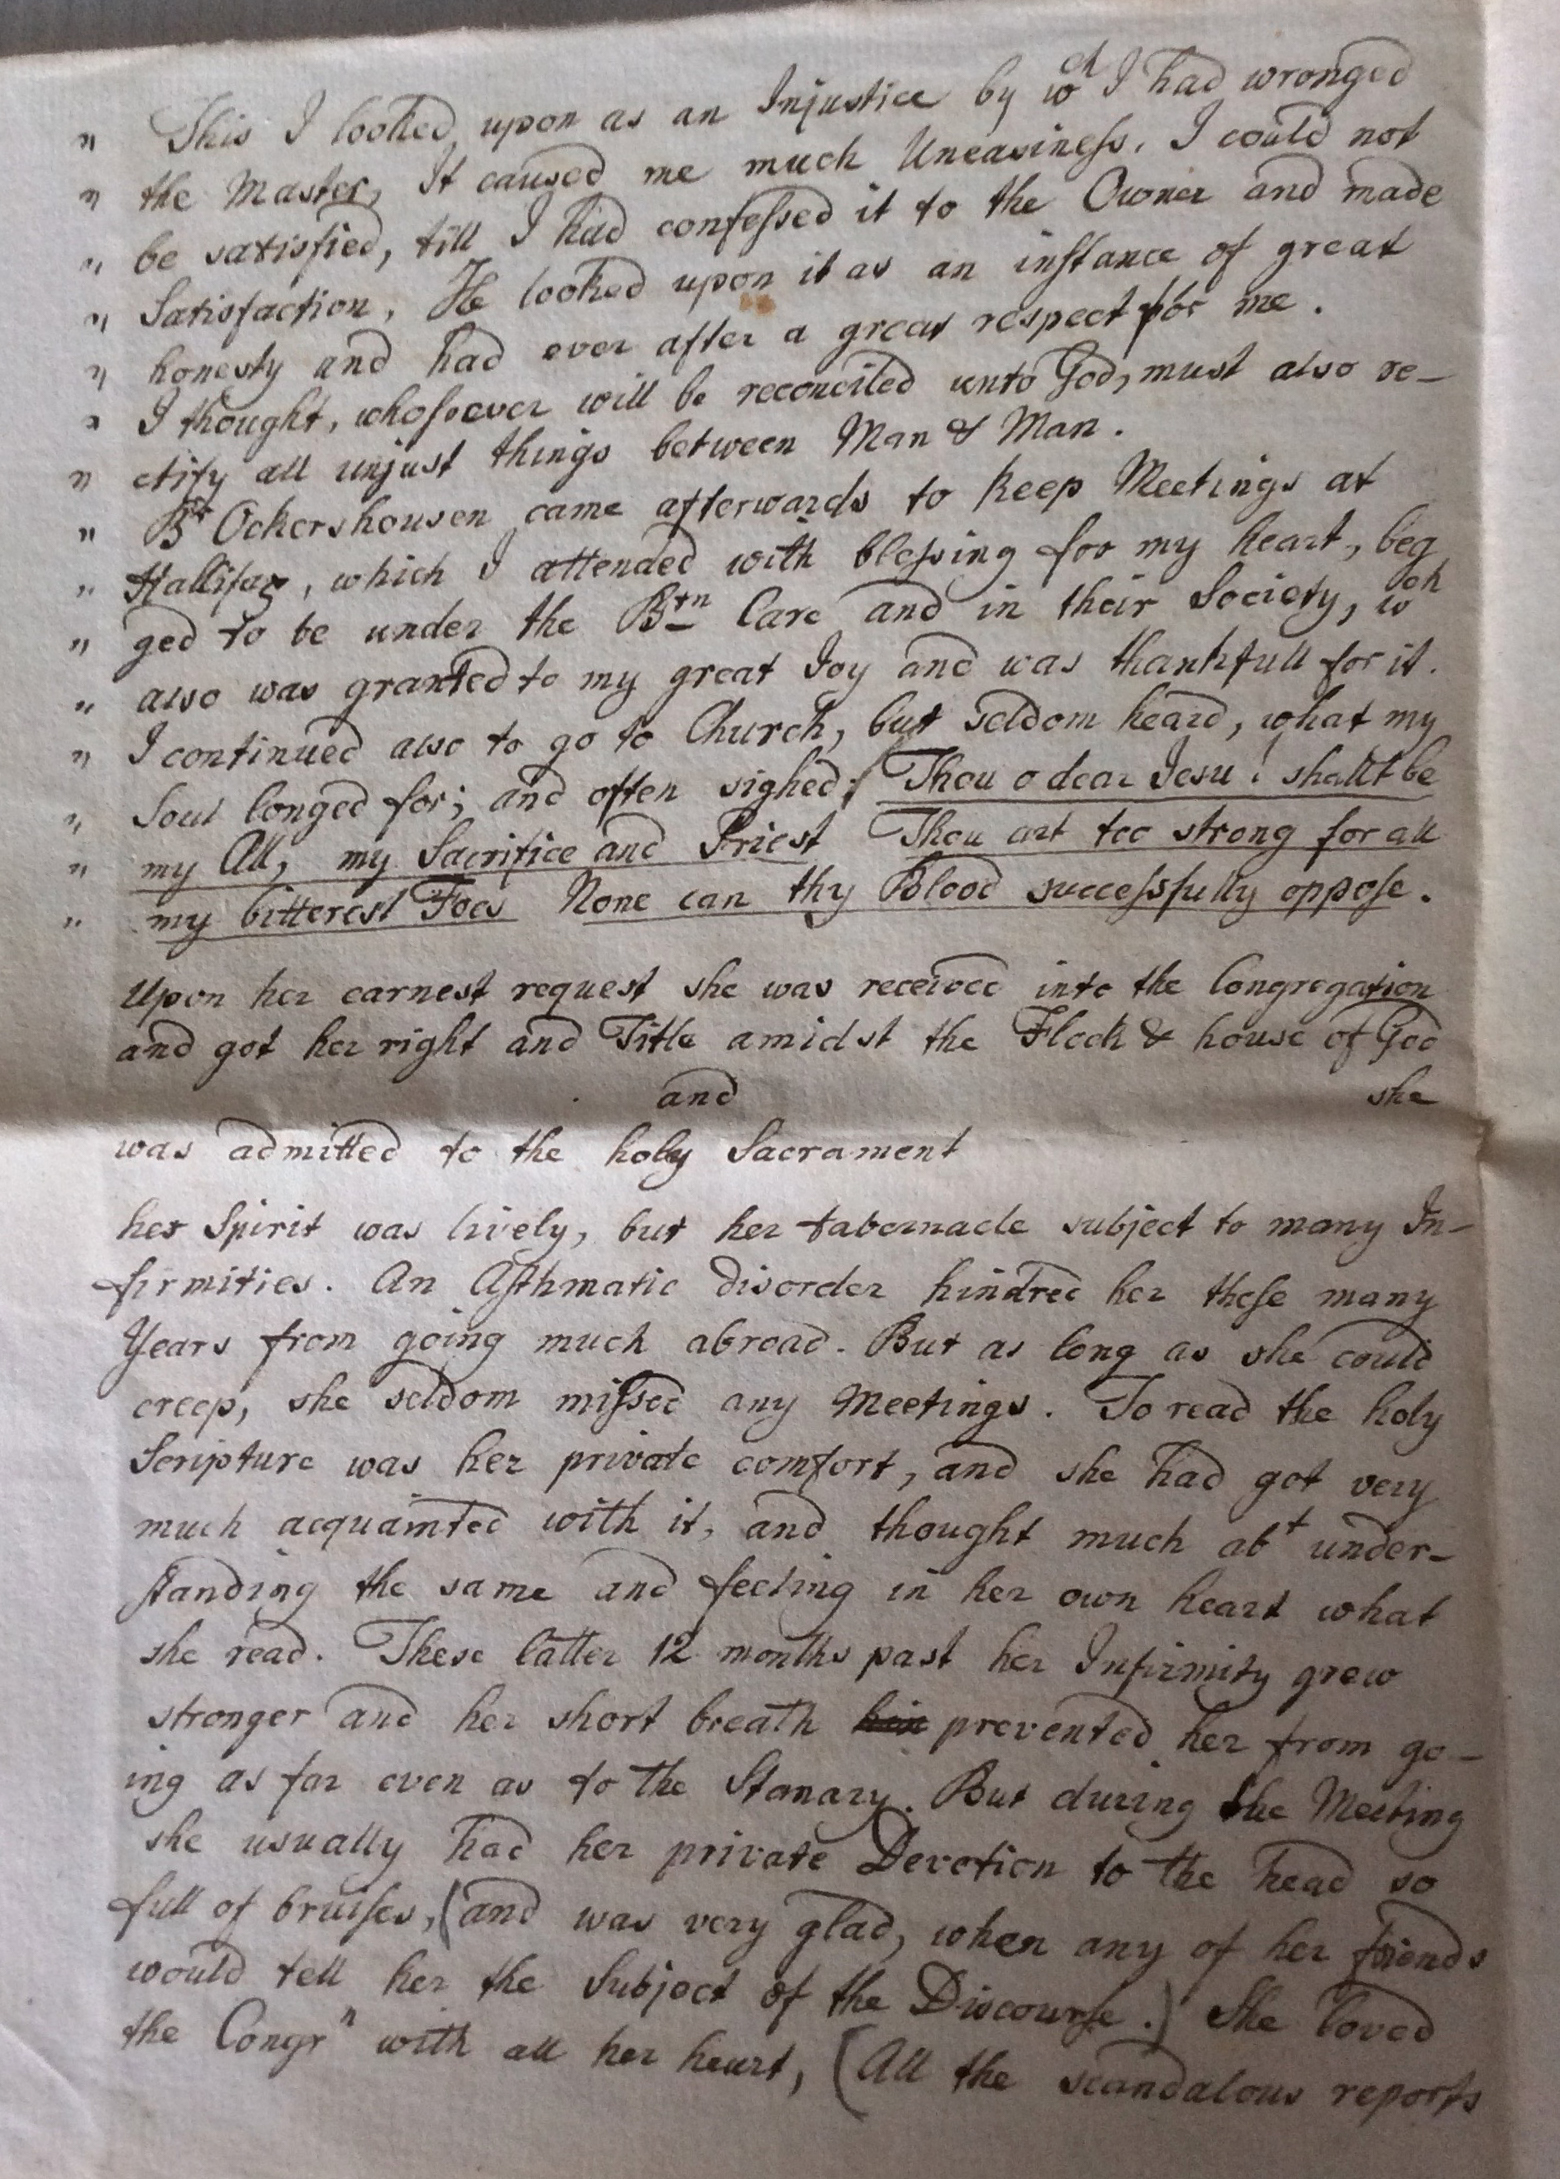 " This I looked upon as an Injustice by wch I had wronged
" the Master, It caused me much Uneasineſs. I could not
" be satisfied, till I had confeſsed it to the Owner and made
" Satisfaction, He looked upon it as an inſtance of great
" honesty and had ever after a great respect for me.
" I thought, whoſoever will be reconciled unto God, must also re-
" ctify all unjust things between Man & Man.
" Br Ockershousen came afterwards to keep Meetings at
" Hallifax, which I attended with bleſsing for my heart, beg
" ged to be under the Brn Care and in their Society, wch
" also was granted to my great Joy and was thankfull for it.
" I continued also to go to Church, but seldom heard, what my
" Soul longed for; and often sighed: Thou o dear Jesu! shallt be
" my All, my Sacrifice and Priest Thou art too strong for all
" my bitterest Foes None can thy Blood succeſsfully oppoſe.
Upon her earnest request she was received into the Congregation
and got her right and Title amidst the Flock & house of God
and she
was admitted to the holy Sacrament
her Spirit was lively, but her tabernacle subject to many In-
firmities. An Aſthmatic disorder hindred her theſe many
Years from going much abroad. But as long as she could
creep, she seldom miſsed any Meetings. To read the holy
Scripture was her private comfort, and she had got very
much acquainted with it, and thought much abt under-
ſtanding the same and feeling in her own heart what
she read. These latter 12 months past her Infirmity grew
stronger and her short breath prevented her from go-
ing as far even as to the Stanary. But during the Meeting
she usually had her private Devotion to the head so
full of bruiſes, (and was very glad, when any of her friends
would tell her the Subject of the Discourſe.) She loved
the Congrn with all her heart, (All the scandalous reports